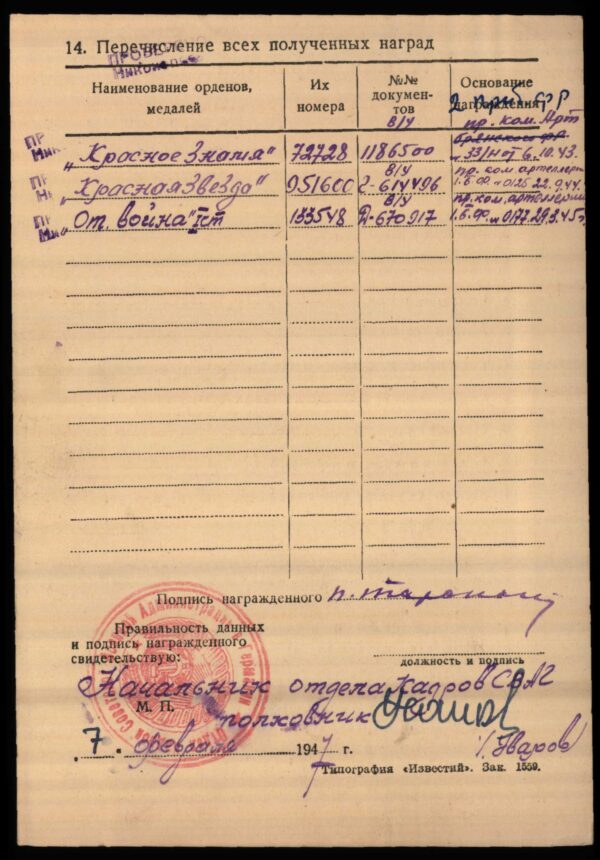 14. Перечисление всех полученных наград
ПРОВЕРЕНО
Наименование орденов, медалей
Их номера
№№ документов
Основание награждения
2 Приб. фр
"Красное Знамя" 72728 в/у 1186500 пр. ком. Арт Брянского фр. 6.10.43.
"Красная Звезда" 951600 в/у Г-614496 пр. ком. артиллерии 1.Б.ф. №0125 22.9.44.
"От. война" Iст 133548 в/у Д-670917 пр. ком. артиллерии 1.Б.ф. №0177 29.3.45г.
Подпись награжденного
Правильность данных
и подпись награжденного
свидетельствую:
должность и подпись
Начальник отдела кадров СВАГ
М. П.
полковник
"7" февраля 1947 г. /Уваров/
Типография «Известий». Зак. 1559.